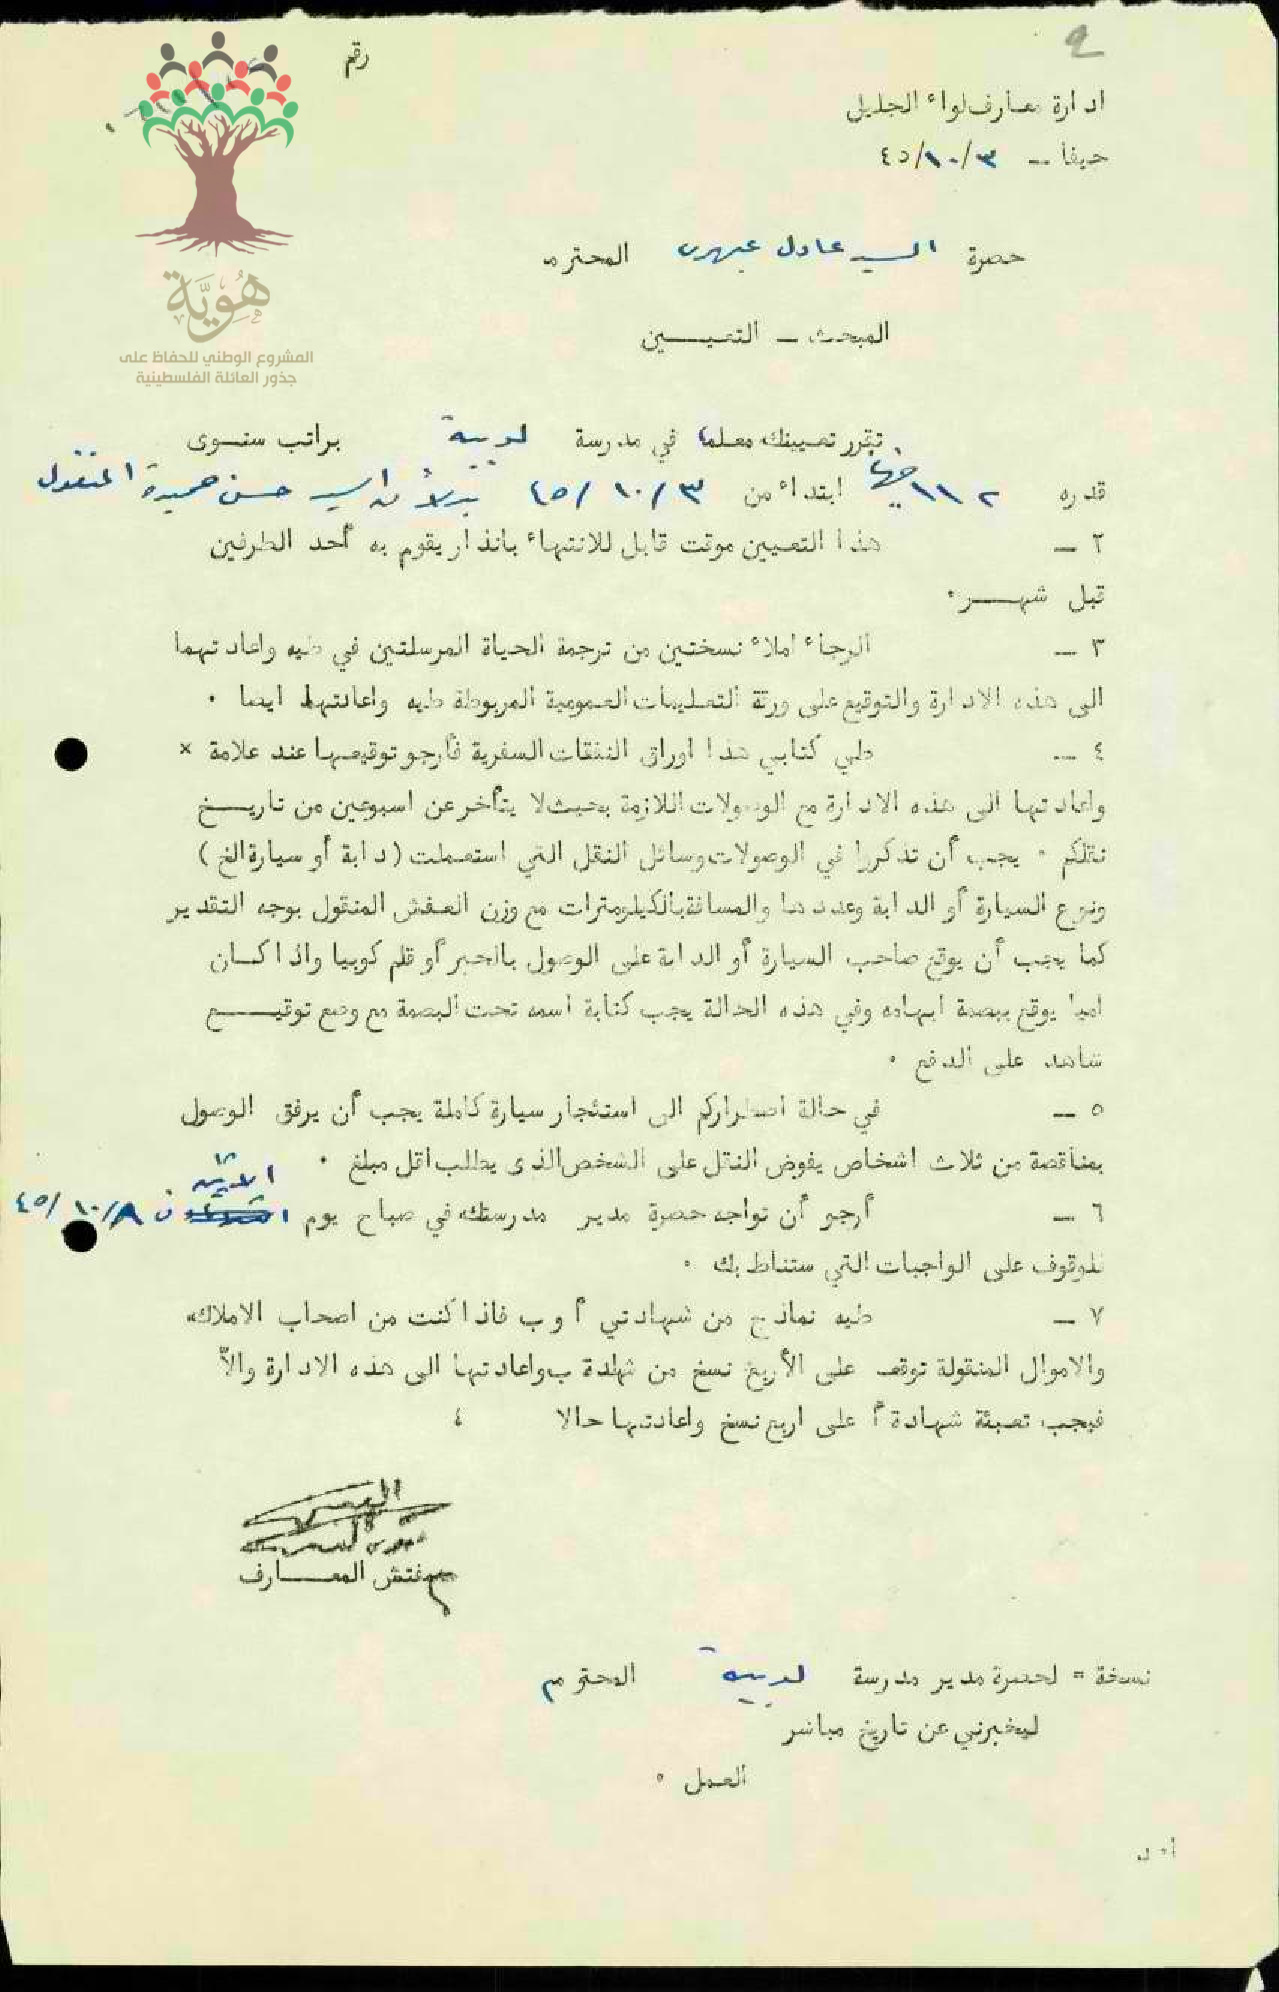 رقم
ادارة معارف لواء الجليل
حيفا — ٤٥/١٠/٣
حضرة السيد عادل المحترم
هُوِيَّة
المشروع الوطني للحفاظ على
جذور العائلة الفلسطينية
المبحث — التعيـــــين
تقرر تعيينك معلما في مدرسة لوبية براتب سنوى
قدره ١١٢ جنيها ابتداء من ٤٥/١٠/٣ بدلاً من السيد حسن حميدة المنقول
٢ — هذا التعيين موقت قابل للانتهاء بانذار يقوم به أحد الطرفين
قبل شهــــر٠
٣ — الرجاء املاء نسختين من ترجمة الحياة المرسلتين في طيه واعادتهما
الى هذه الادارة والتوقيع على ورقة التعليمات العمومية المربوطة طيه واعادتها ايضا ٠
٤ — طي كتابي هذا اوراق النفقات السفرية فأرجو توقيعها عند علامة ×
واعادتها الى هذه الادارة مع الوصولات اللازمة بحيث لا يتأخر عن اسبوعين من تاريــخ
نقلكم ٠ يجب أن تذكروا في الوصولات وسائل النقل التي استعملت (دابة أو سيارة الخ )
ونوع السيارة أو الدابة وعددها والمسافة بالكيلومترات مع وزن العفش المنقول بوجه التقدير
كما يجب أن يوقع صاحب السيارة أو الدابة على الوصول بالحبر أو قلم كوبيا واذا كــان
اميا يوقع ببصمة ابهامه وفي هذه الحالة يجب كتابة اسمه تحت البصمة مع وضع توقيــــع
شاهد على الدفع ٠
٥ — في حالة اضطراركم الى استئجار سيارة كاملة يجب أن يرفق الوصول
بمناقصة من ثلاث اشخاص يفوض النقل على الشخص الذى يطلب اقل مبلغ ٠
٦ — أرجو أن تواجه حضرة مدير مدرستك في صباح يوم الاثنين في ٤٥/١٠/٨
للوقوف على الواجبات التي ستناط بك ٠
٧ — طيه نماذج من شهادتي أ و ب فاذا كنت من اصحاب الاملاك
والاموال المنقولة توقع على الأربع نسخ من شهادة ب واعادتها الى هذه الادارة والاّ
فيجب تعبئة شهادة أ على اربع نسخ واعادتها حالا ٤
مفتش المعـــــارف
نسخة = لحضرة مدير مدرسة لوبية المحترم
ليخبرني عن تاريخ مباشر
العمل ٠